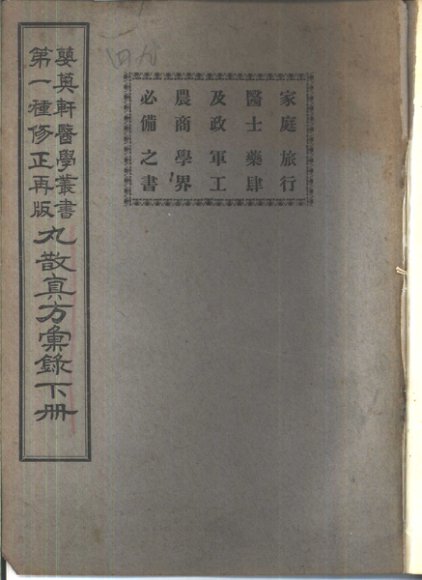 家庭旅行
醫士藥肆
及政軍工
農商學界
必備之書
英軒醫學叢書
第一種修正再版
丸散真方彙錄下册